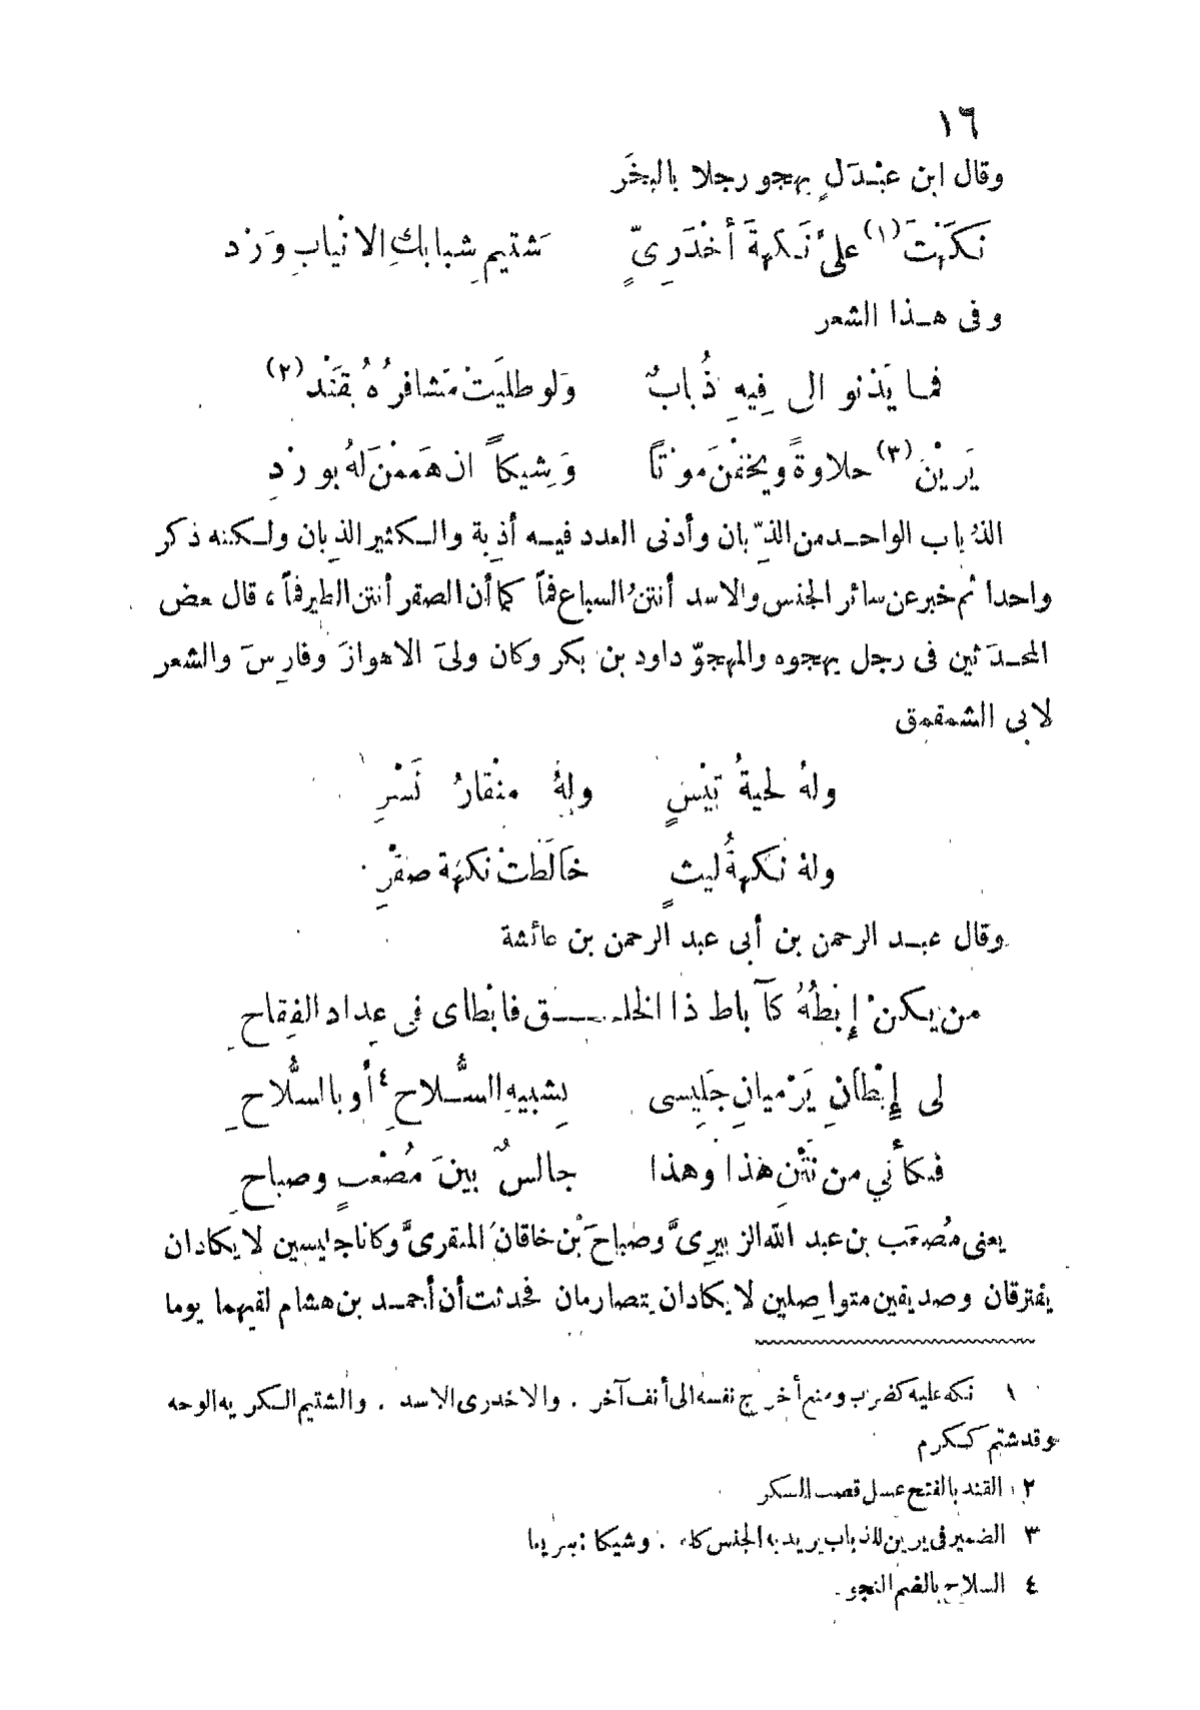 ١٦
وقال ابن عبْدَلٍ يهجو رجلا بالبخَر
نَكَهْتَ (١) علىَّ نَكهةَ أخْدَرِىٍّ شتيمٍ شِبابكِ الانْيابِ وَرْد
وفى هذا الشعر
فما يَدْنو الى فِيهِ ذُبابٌ وَلو طليَتْ مَشافرُهُ بقَنْد (٢)
يَريْنَ (٣) حلاوةً ويخفْنَ موْتاً وَشِيكاً ان هَممْنَ لهُ بورْدِ
الذُباب الواحد من الذِّبان وأدنى العدد فيه أذبة والكثير الذِبان ولكنه ذكر
واحدا ثم خبر عن سائر الجنس والاسد أنتنُ السباع فماً كما أن الصقر أنتن الطير فماً ، قال بعض
المحدَثين فى رجل يهجوه والمهجوّ داود بن بكر وكان ولىَ الاهوازَ وفارِسَ والشعر
لابى الشمقمق
ولهُ لحيةُ تيْسٍ ولهُ منْقارُ نَسْرِ
ولهُ نَكهةُ ليثٍ خالَطتْ نكهَة صقْرِ
وقال عبد الرحمن بن أبى عبد الرحمن بن عائشة
من يكنْ إبْطُهُ كآباط ذا الخلــق فابْطاى فى عِداد الفِقاحِ
لى إِبْطانِ يَرْميانِ جَلِيسى بِشبيهِ السُّلاحِ ٤ أو بالسُّلاحِ
فكأني من نَتْنِ هٰذا وهٰذا جالسٌ بينَ مُصْعبٍ وصباحِ
يعنى مُصعَب بن عبد الله الزبيرِىَّ وصَباحَ بْن خاقانَ المنقرىَّ وكانا جليسين لا يكادان
يفترقان وصديقين متواصِلين لا يكادان يتصارمان فحدثت أن أحمد بن هشام لقيهما يوما
١ نكه عليه كضرب ومنع أخرج نفسه الى أنف آخر . والاخدرى الاسد . والشتيم الكريه الوجه
وقد شتم ككرم
٢ القند بالفتح عسل قصب السكر
٣ الضمير فى يرين للذباب يريد به الجنس كله . وشيكا : سريعا
٤ السلاح بالضم النجو